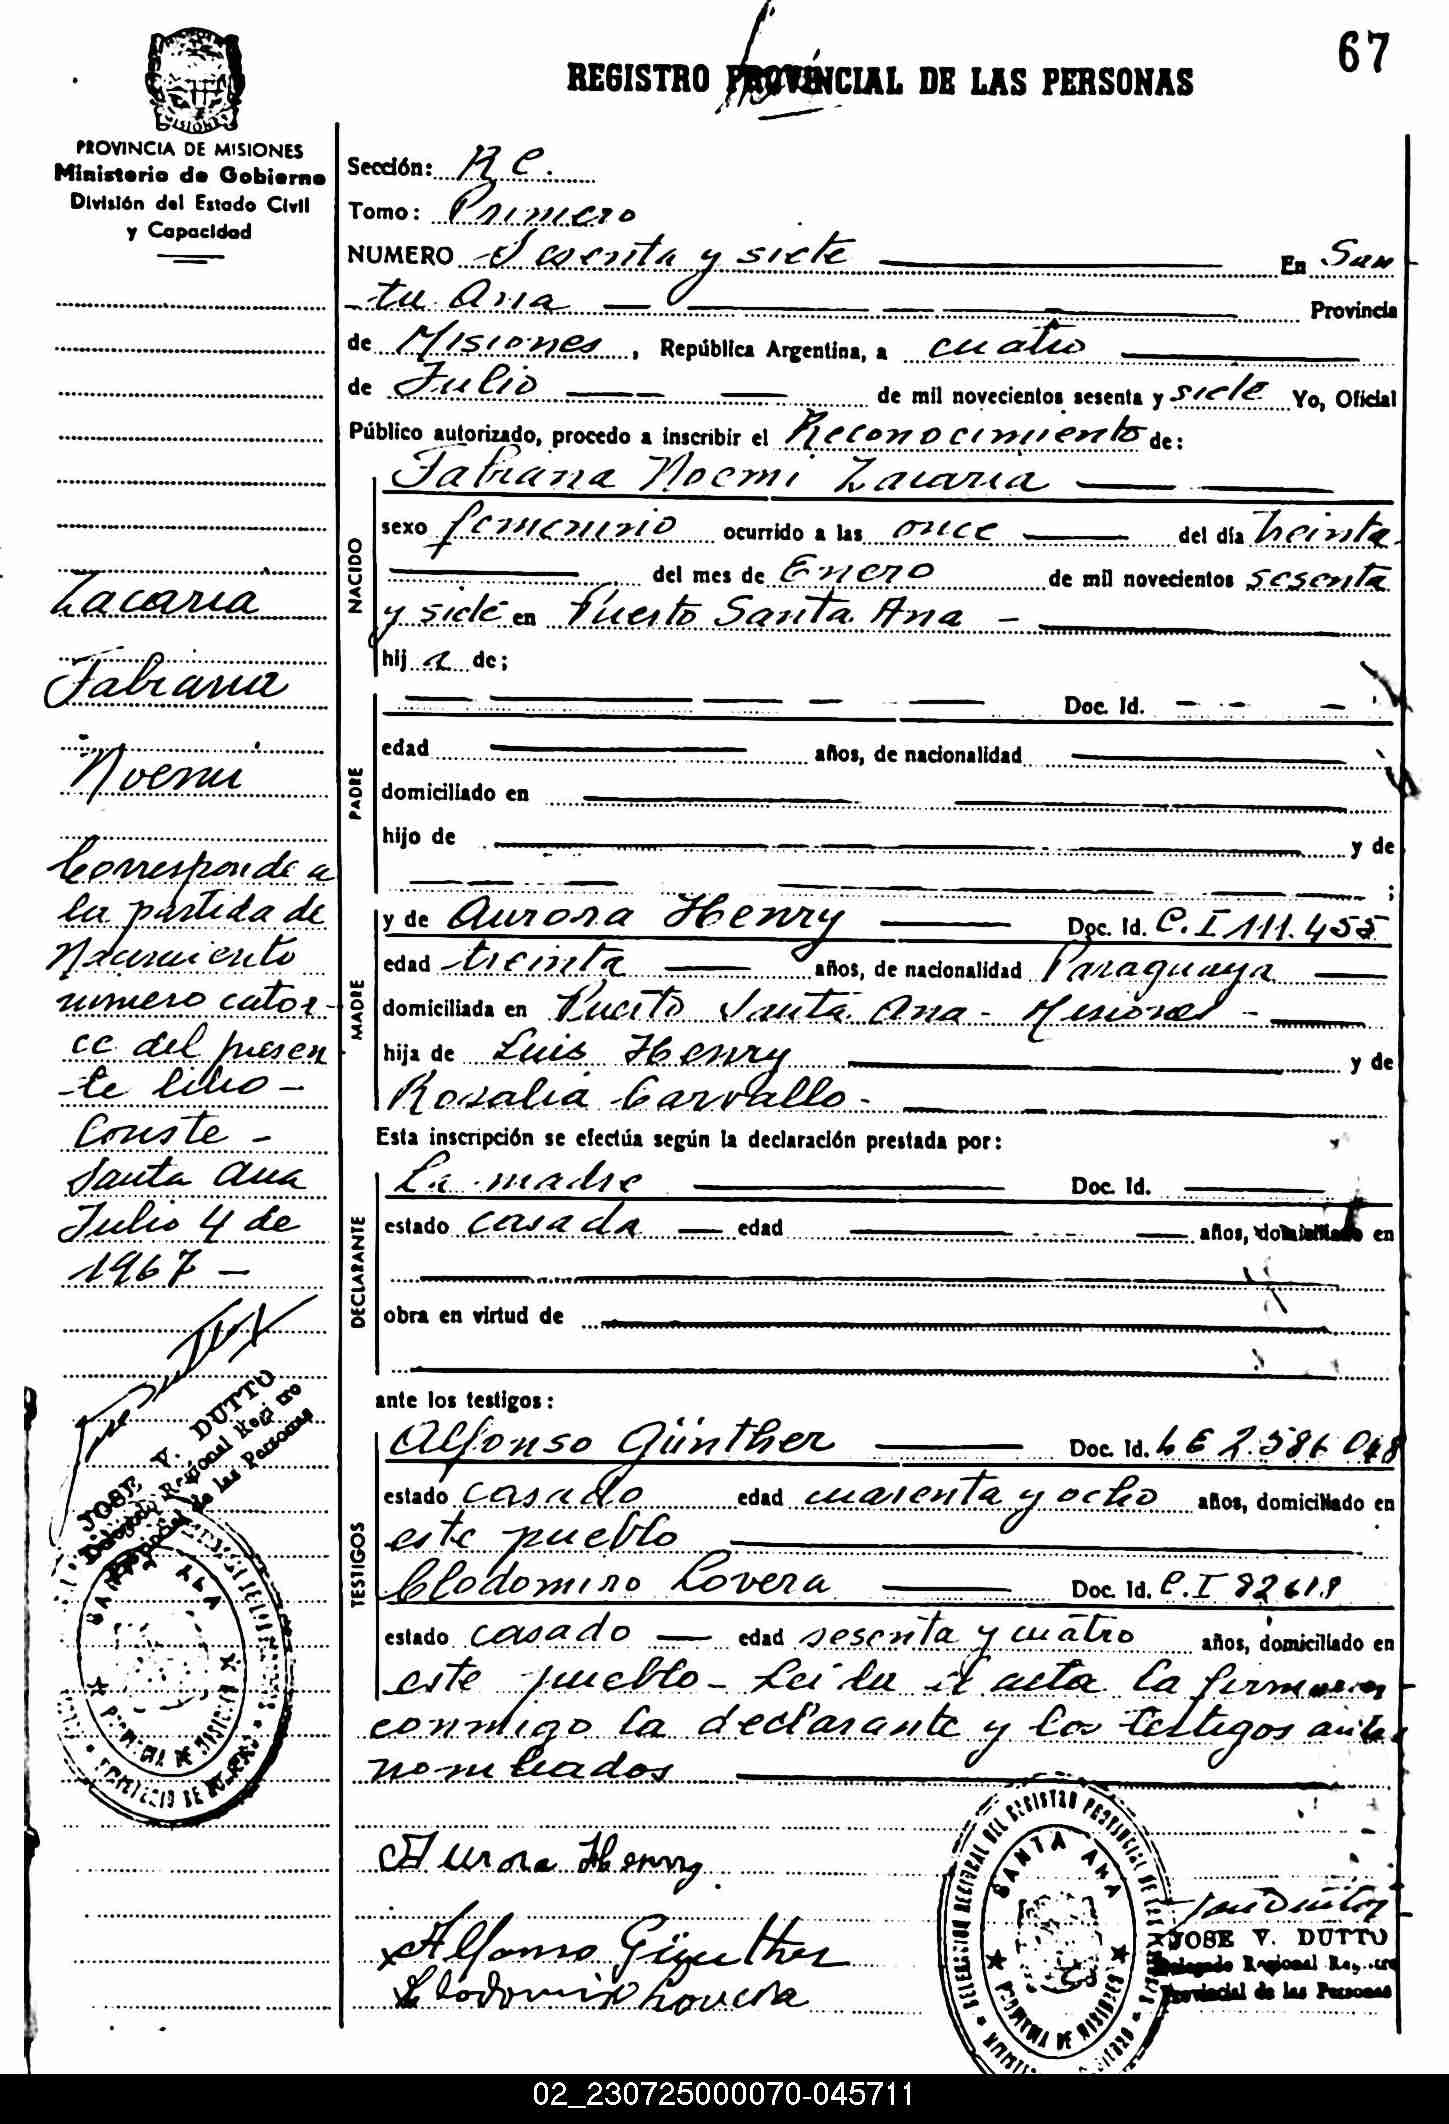 67
REGISTRO PROVINCIAL DE LAS PERSONAS
PROVINCIA DE MISIONES
Ministerio de Gobierno
División del Estado Civil
y Capacidad
Zacaria
Fabiana
Noemi
Corresponde a
la partida de
Nacimiento
numero cator-
ce del presen
-te libro -
Conste -
Santa Ana
Julio 4 de
1967 -
JOSE V. DUTTO
Delegado Regional Registro
Provincial de las Personas
SANTA ANA
PROVINCIA DE MISIONES
Sección: R C.
Tomo: Primero
NUMERO Sesenta y siete En San
-ta Ana Provincia
de Misiones, República Argentina, a cuatro
de Julio de mil novecientos sesenta y siete Yo, Oficial
Público autorizado, procedo a inscribir el Reconocimiento de:
NACIDO
Fabiana Noemi Zacaria
sexo femenino ocurrido a las once del día treinta
del mes de Enero de mil novecientos sesenta
y siete en Puerto Santa Ana -
hij a de;
PADRE
Doc. Id.
edad años, de nacionalidad
domiciliado en
hijo de y de
;
MADRE
y de Aurora Henry Doc. Id. C.I 111.455
edad treinta años, de nacionalidad Paraguaya
domiciliada en Puerto Santa Ana - Misiones -
hija de Luis Henry y de
Rosalia Carvallo -
Esta inscripción se efectúa según la declaración prestada por:
DECLARANTE
La madre Doc. Id.
estado casada edad años, domiciliado en
obra en virtud de
ante los testigos:
TESTIGOS
Alfonso Günther Doc. Id. L E 2.586.048
estado casado edad cuarenta y ocho años, domiciliado en
este pueblo
Clodomiro Lovera Doc. Id. C.I 82618
estado casado edad sesenta y cuatro años, domiciliado en
este pueblo - Leida el acta la firman
conmigo la declarante y los testigos ante
nombrados
Aurora Henry.
Alfonso Günther
Clodomiro Lovera
DELEGACION REGIONAL DEL REGISTRO PROVINCIAL DE LAS
SANTA ANA
PROVINCIA DE MISIONES
JOSE V. DUTTO
Delegado Regional Registro
Provincial de las Personas
02_230725000070-045711